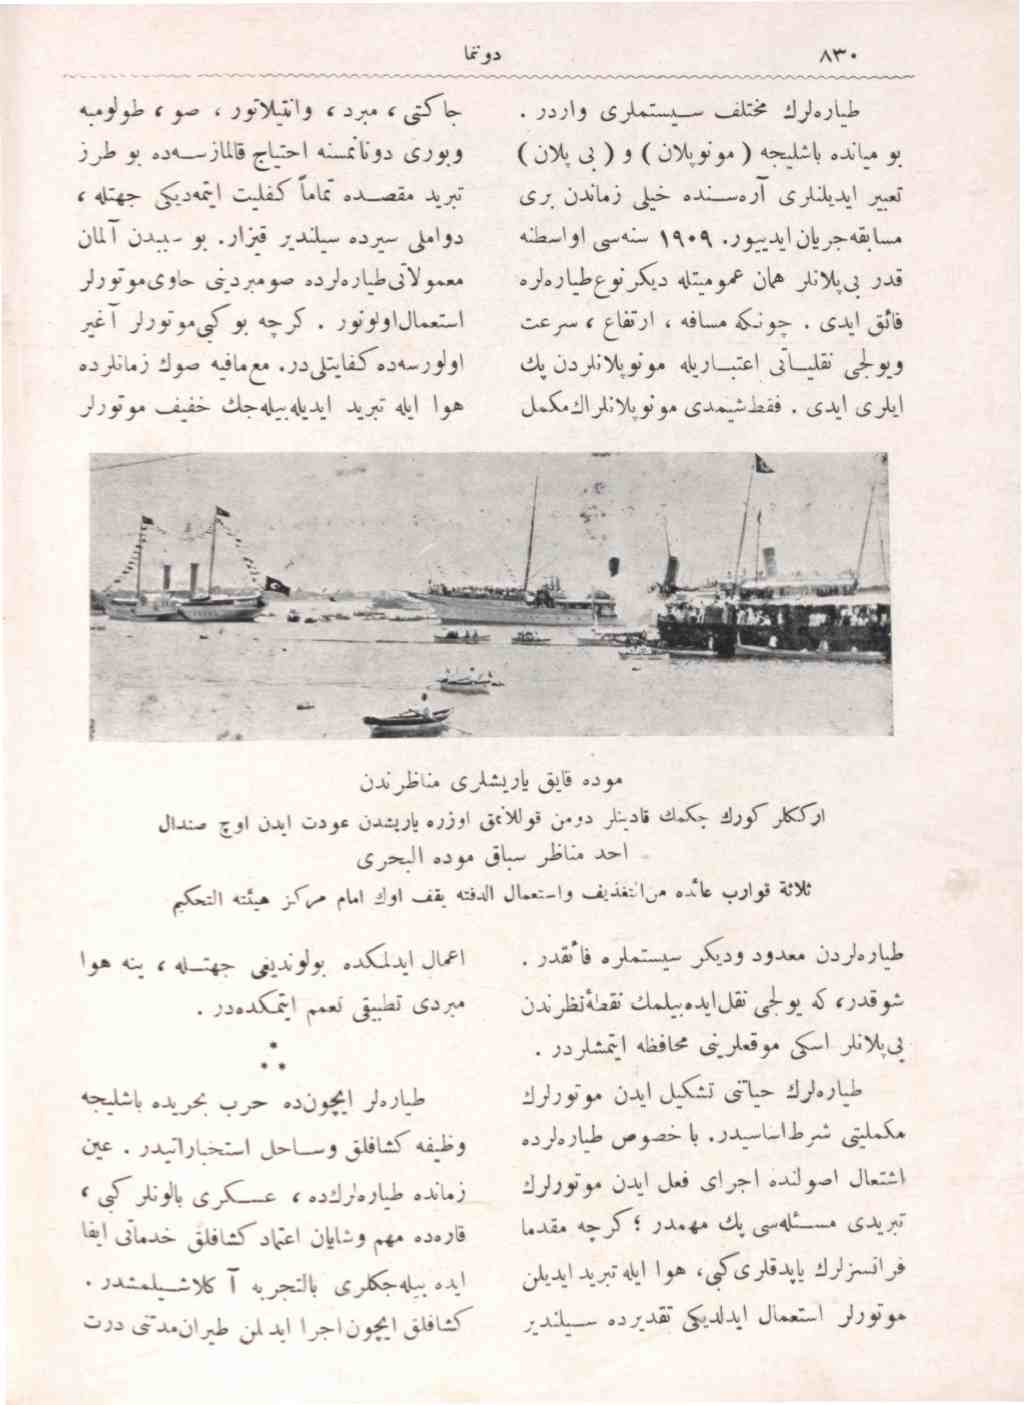 ٨٣٠
دوننما
طیاره‌لرك مختلف سیستملری واردر .
بو میانده باشلیجه ( مونوپلان ) و ( بی پلان )
تعبیر ایدیلنلری آره‌سنده خیلی زماندن بری
مسابقه جریان ایدییور. ١٩٠٩ سنه‌سی اواسطنه
قدر بی‌پلانلر همان عمومیتله دیكر نوع طیاره‌لره
فائق ایدی . چونكه مسافه ، ارتفاع ، سرعت
ویولجی نقلیاتی اعتباریله مونوپلانلردن پك
ایلری ایدی . فقط شیمدی مونوپلانلر اك مكمل
جاكتی ، مبرد ، وانتیلاتور ، صو ، طولومبه
وبوری دوناتمسنه احتیاج قالمازسه‌ده بو طرز
تبرید مقصده تماماً كفلیت ایتمه‌دیكی جهتله ،
دواملی سیرده سیلندیر قیزار. بو سببدن آلمان
معمولاتی طیاره‌لرده صو مبردینی حاوی موتورلر
استعمال اولونور . كرچه بو كبی موتورلر آغیر
اولورسه‌ده كفایتلی‌در. مع‌مافیه صوك زمانلرده
هوا ایله تبرید ایدیله‌بیله‌جك خفیف موتورلر
موده قایق یاریشلری مناظرندن
ارككلر كورك چكمك قادینلر دومن قوللانمق اوزره یاریشدن عودت ایدن اوچ صندال
احد مناظر سباق موده البحری
ثلاثة قوارب عائده من التغذیف واستعمال الدفته یقف اوك امام مركز هیئته التحكیم
طیاره‌لردن معدود ودیكر سیستملره فائقدر .
شوقدر، كه یولجی نقل ایده‌بیلمك نقطۀ نظرندن
بی‌پلانلر اسكی موقعلرینی محافظه ایتمشلردر .
طیاره‌لرك حیاتنی تشكیل ایدن موتورلرك
مكملیتی شرط اساسیدر. با خصوص طیاره‌لرده
اشتعال اصولنده اجرای فعل ایدن موتورلرك
تبریدی مسئله‌سی پك مهمدر ؛ كرچه مقدما
فرانسزلرك یاپدقلری كبی، هوا ایله تبرید ایدیلن
موتورلر استعمال ایدلدیكی تقدیرده سیلندیر
اعمال ایدلمكده بولوندیغی جهتله ، ینه هوا
مبردی تطبیقی تعمم ایتمكده‌در .
⁂
طیاره‌لر ایچون‌ده حرب بحریده باشلیجه
وظیفه كشافلق وساحل استخباراتیدر . عین
زمانده طیاره‌لرك‌ده ، عسكری بالونلر كبی ،
قاره‌ده مهم وشایان اعتماد كشافلق خدماتی ایفا
ایده بیله‌جكلری بالتجربه آكلاشیلمشدر .
كشافلق ایچون اجرا ایدیلن طیران مدتنی درت